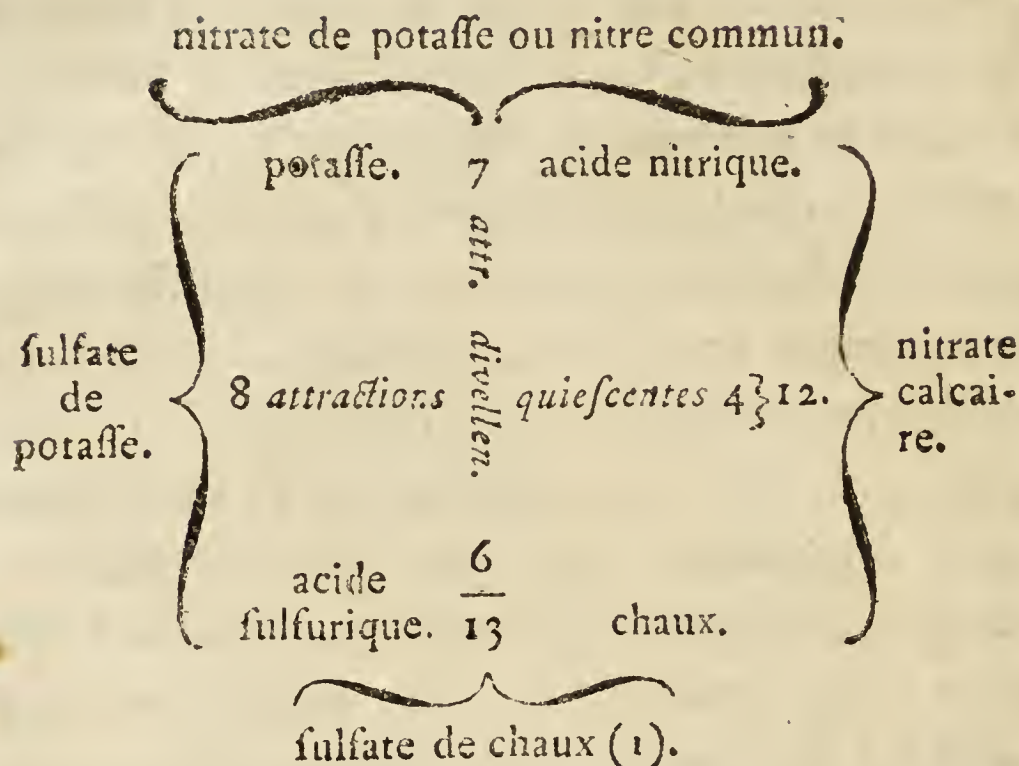 nitrate de potaſſe ou nitre commun.
potaſſe. 7 acide nitrique.
attr. divellen.
ſulfate
de
potaſſe.
8 attractions quieſcentes 4}12.
nitrate
calcai-
re.
acide
ſulfurique.
6
13
chaux.
ſulfate de chaux (1).